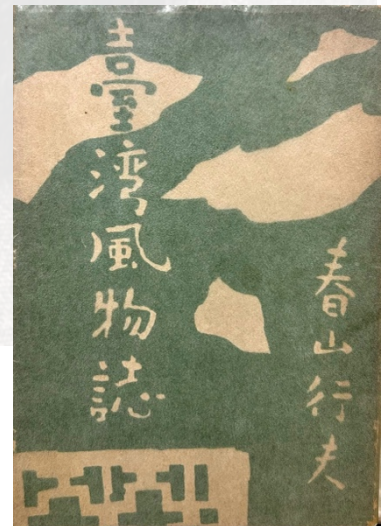 臺灣風物誌
春山行夫